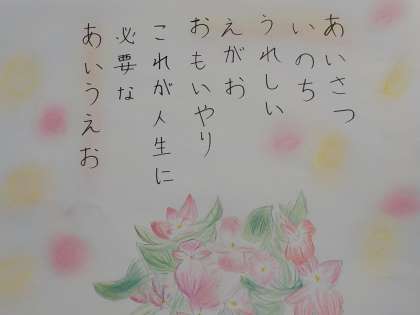 あいさつ
いのち
うれしい
えがお
おもいやり
これが人生に
必要な
あいうえお